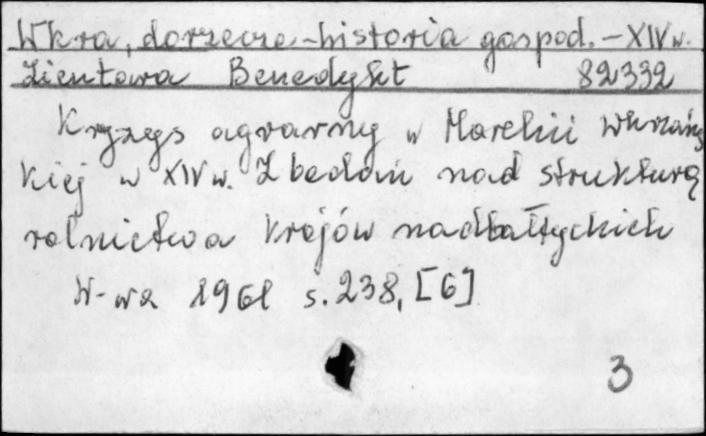 Wkra, dorzecze - historia gospod. - XIV w.
Zientara Benedykt 82332
Kryzys agrarny w Marchii Wkrzańs
kiej w XIV w. Z badań nad strukturą
rolnictwa krajów nadbałtyckich
W-wa 1961 s. 238, [6]
3